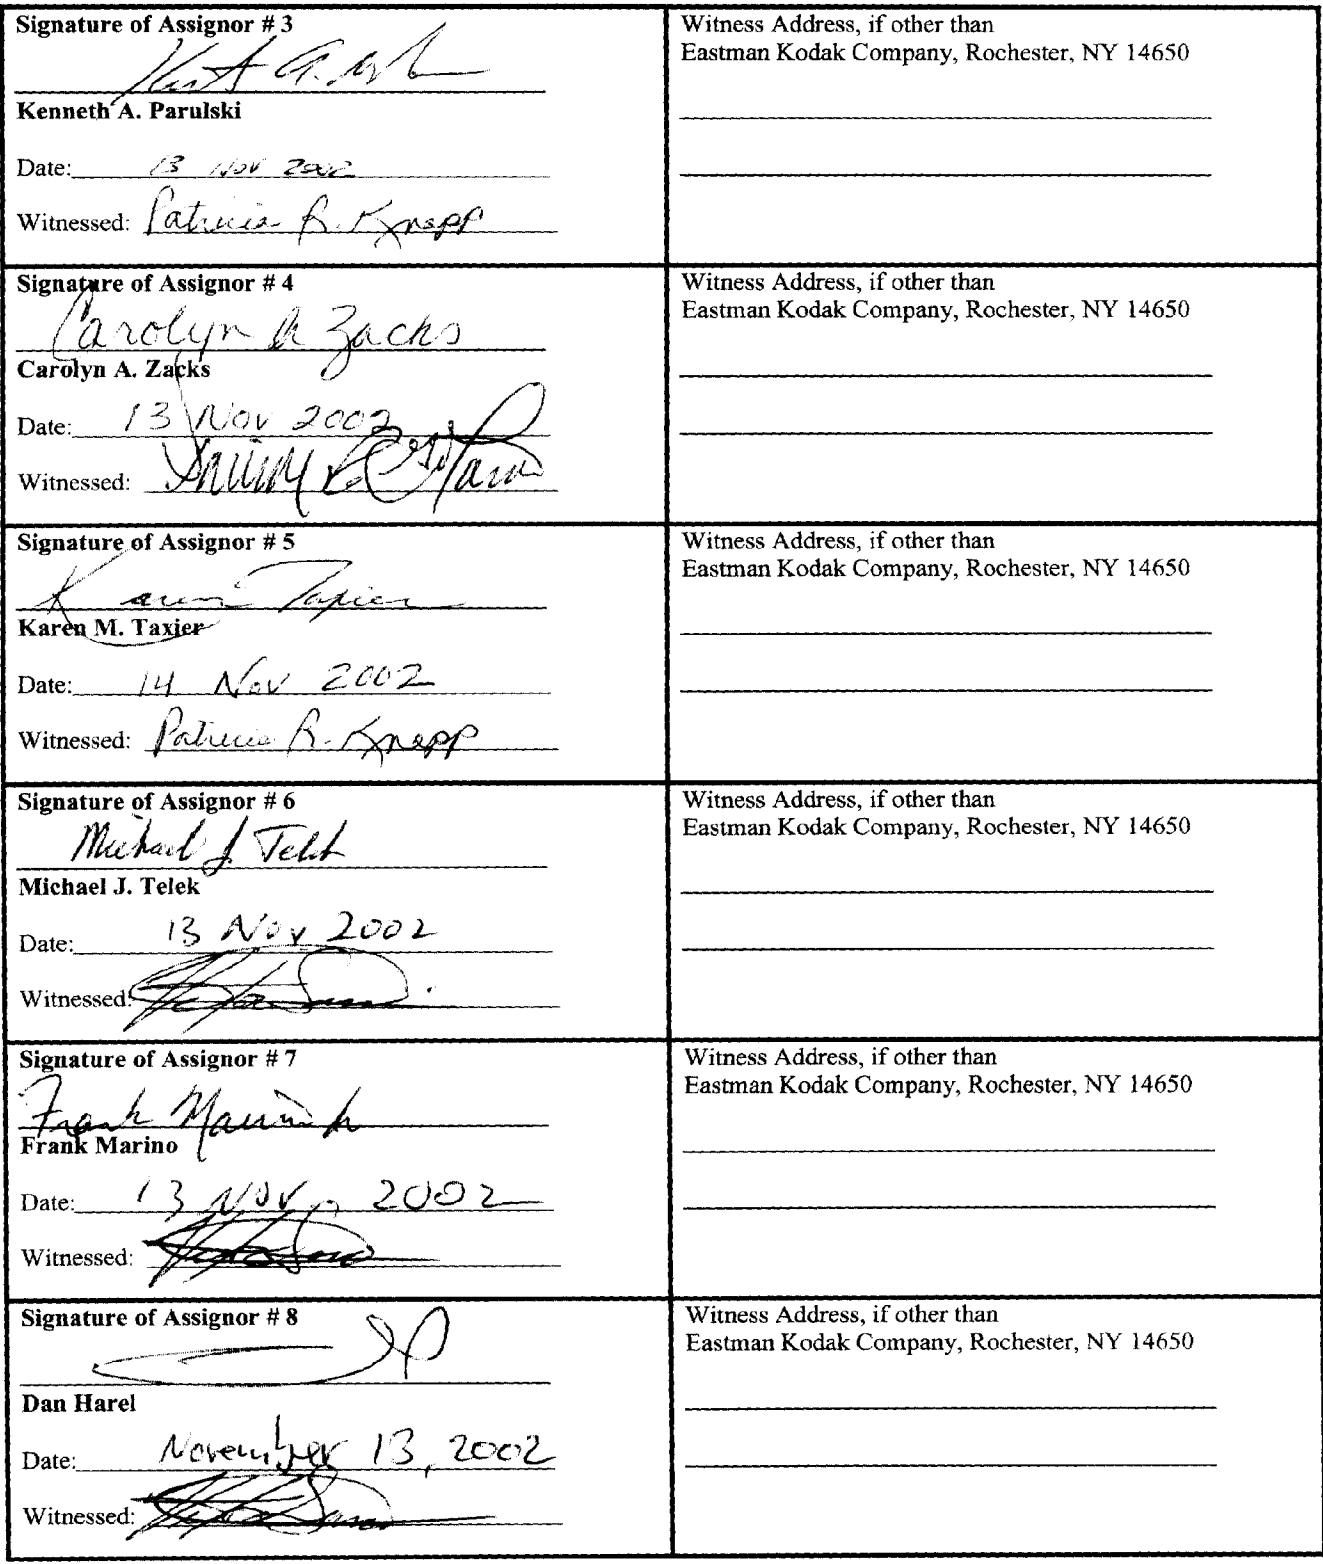 Signature of Assignor # 3
Kenneth A. Parulski
Date: 13 Nov 2002
Witnessed: Patricia R. Knapp
Witness Address, if other than
Eastman Kodak Company, Rochester, NY 14650
Signature of Assignor # 4
Carolyn A Zacks
Carolyn A. Zacks
Date: 13 Nov 2002
Witnessed:
Witness Address, if other than
Eastman Kodak Company, Rochester, NY 14650
Signature of Assignor # 5
Karen Taxier
Karen M. Taxier
Date: 14 Nov 2002
Witnessed: Patricia R. Knapp
Witness Address, if other than
Eastman Kodak Company, Rochester, NY 14650
Signature of Assignor # 6
Michael J. Telek
Michael J. Telek
Date: 13 Nov 2002
Witnessed:
Witness Address, if other than
Eastman Kodak Company, Rochester, NY 14650
Signature of Assignor # 7
Frank Marino Jr
Frank Marino
Date: 13 NOV 2002
Witnessed:
Witness Address, if other than
Eastman Kodak Company, Rochester, NY 14650
Signature of Assignor # 8
Dan Harel
Date: November 13, 2002
Witnessed:
Witness Address, if other than
Eastman Kodak Company, Rochester, NY 14650